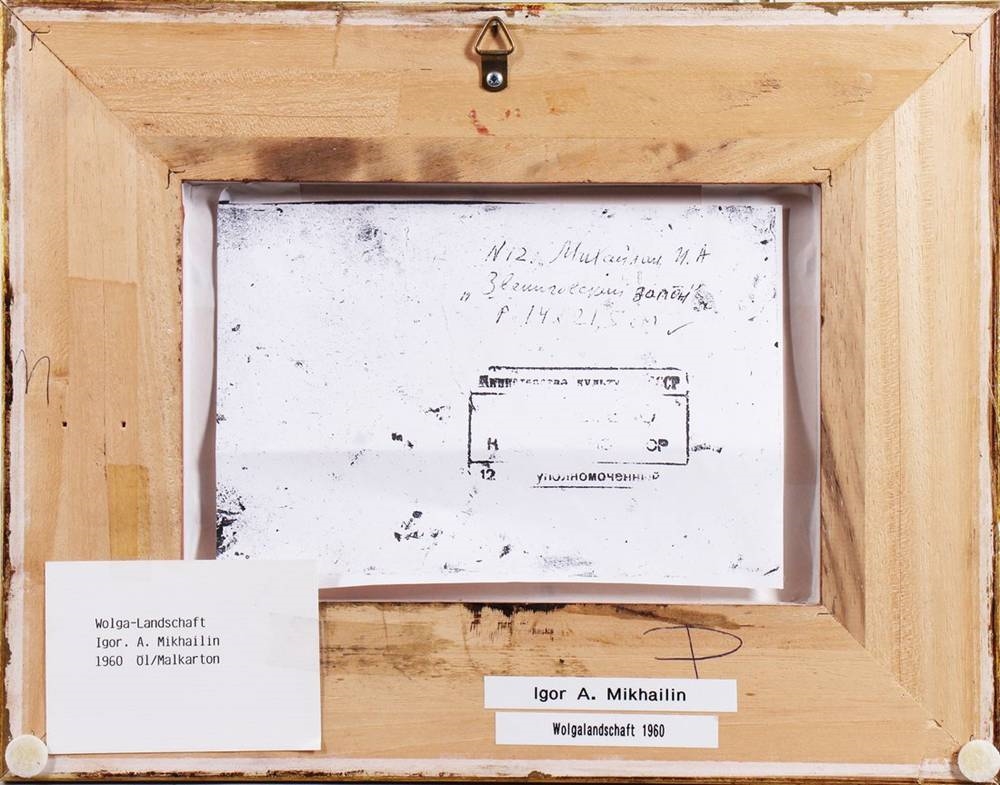 N12. Михайлин И.А
„Звениговский затон"
Р. 14 x 21,5 см
Министерства культу СР
Н СР
12 уполномоченный
n
P
Wolga-Landschaft
Igor. A. Mikhailin
1960 Öl/Malkarton
Igor A. Mikhailin
Wolgalandschaft 1960